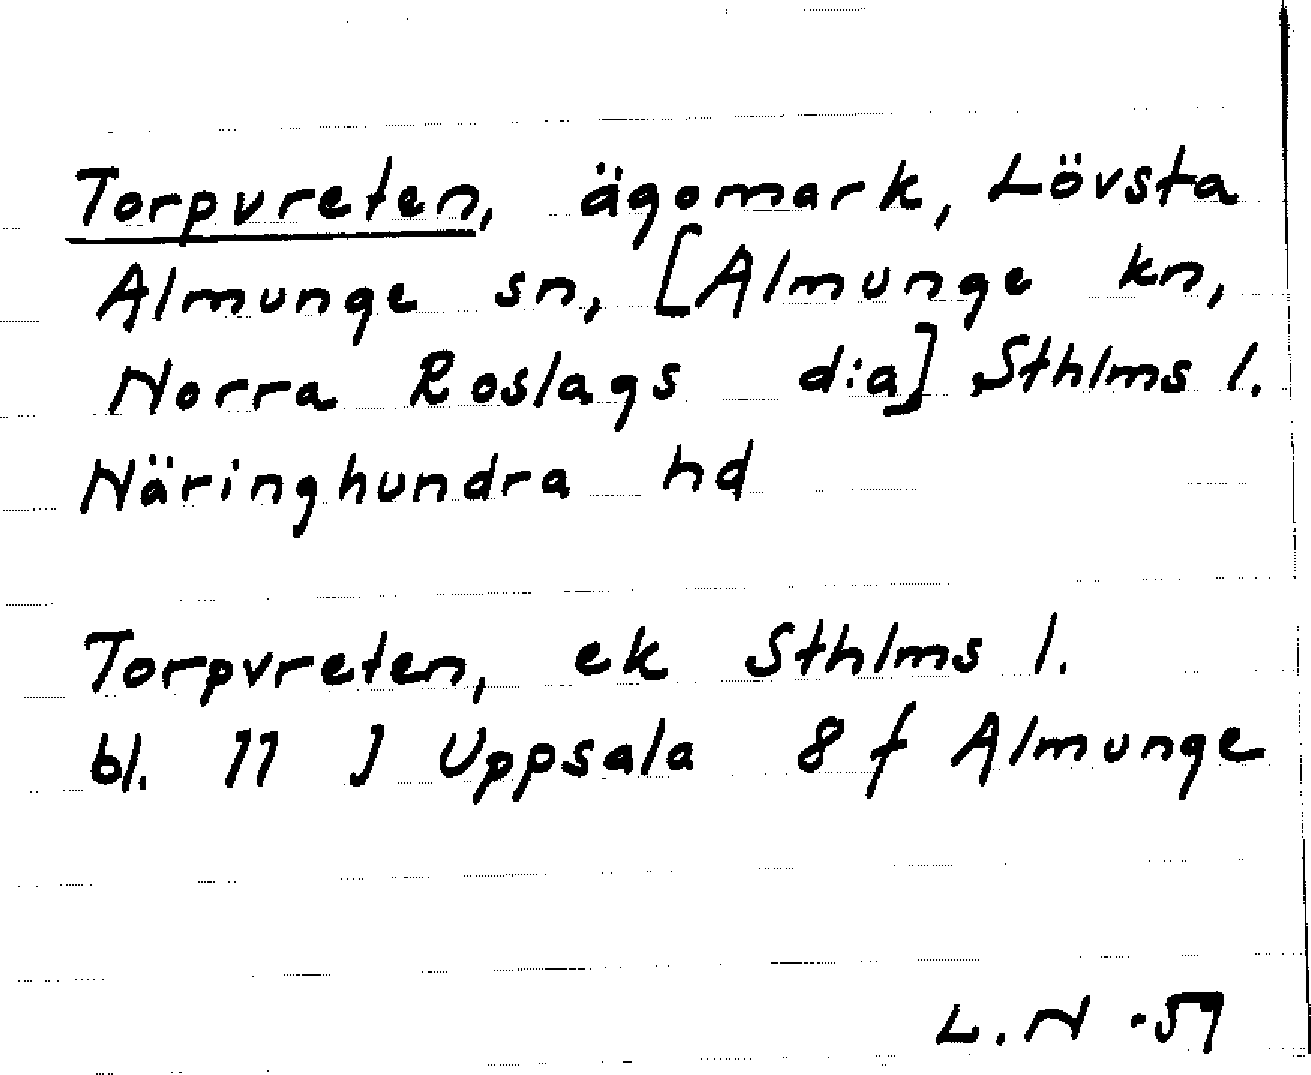 Torpvreten, ägomark, Lövsta
Almunge sn, [Almunge kn,
Norra Roslags d:a] Sthlms l.
Näringhundra hd
Torpvreten, ek Sthlms l.
bl. 11 J Uppsala 8 f Almunge
L. N -57